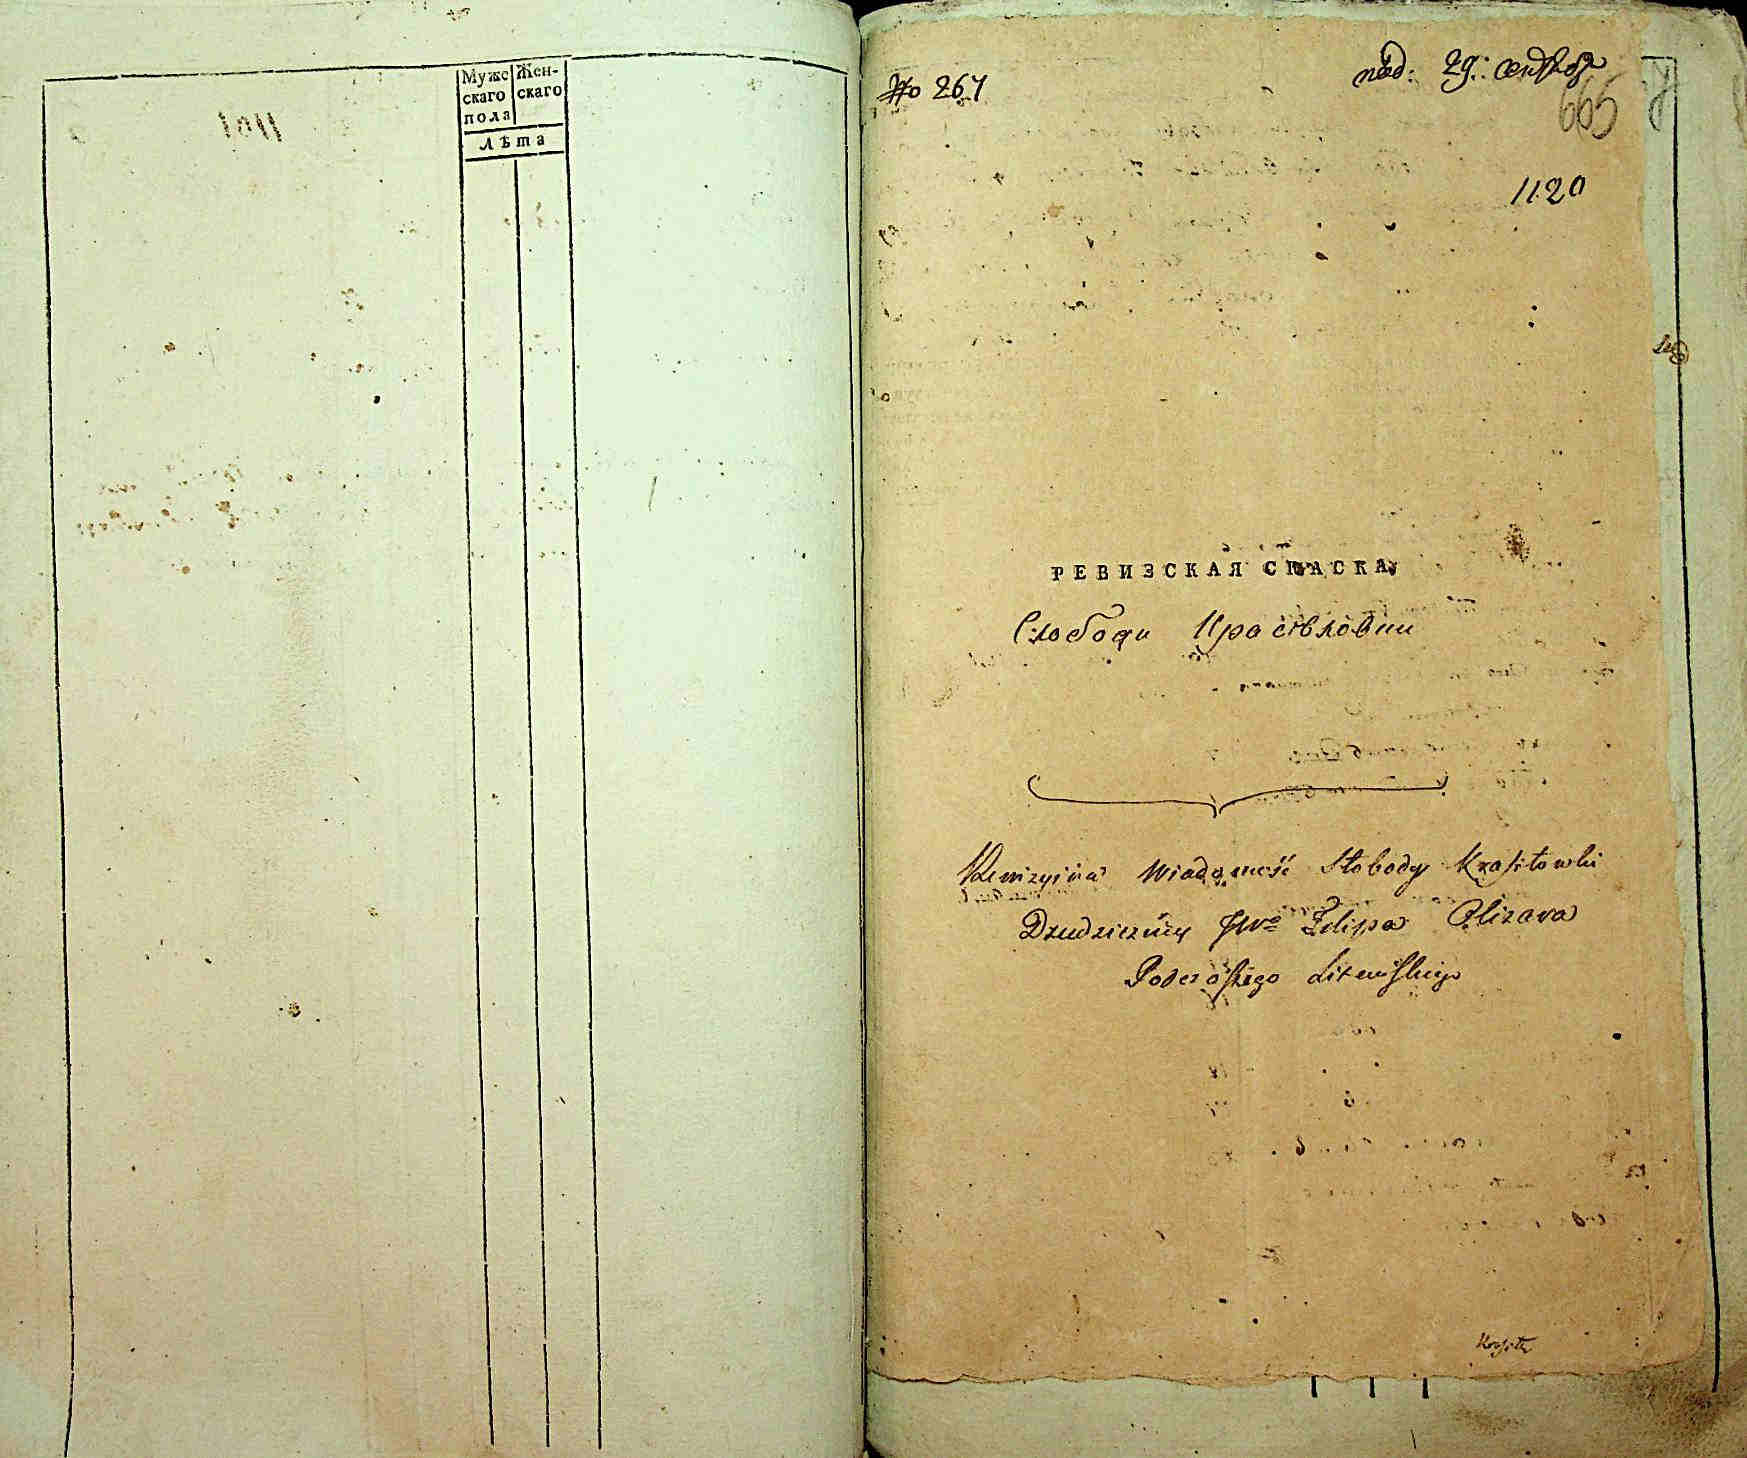 Муже
скаго
пола
Жен-
скаго
Лѣта
1101
No 267
под: 29: сентяб
665
1120
РЕВИЗСКАЯ СКАСКА
Слободи Красиловки
Rewizyina Wiadomość Słobody Krasiłowki
Dziedziczney JWo Filipa Olizara
Podczaszego Litewskiego